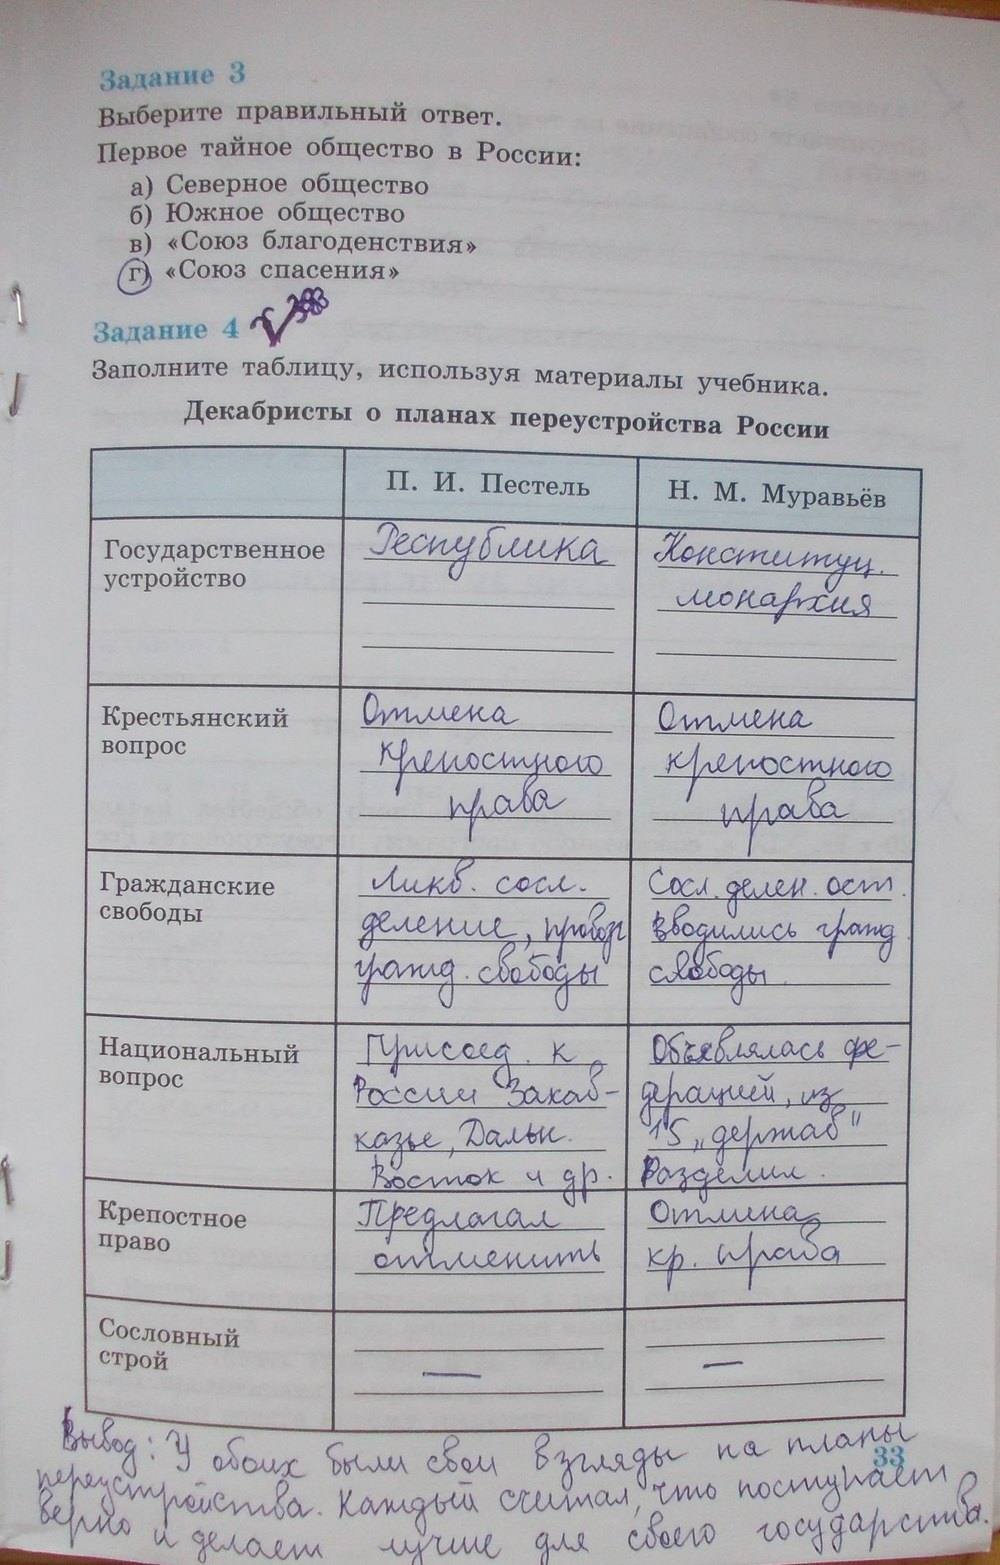 Задание 3
Выберите правильный ответ.
Первое тайное общество в России:
а) Северное общество
б) Южное общество
в) «Союз благоденствия»
г) «Союз спасения»
Задание 4
Заполните таблицу, используя материалы учебника.
Декабристы о планах переустройства России
П. И. Пестель
Н. М. Муравьёв
Государственное
устройство
Республика
Конституц.
монархия
Крестьянский
вопрос
Отмена
крепостного
права
Отмена
крепостного
права
Гражданские
свободы
Ликв. сосл.
деление, провозг
гражд. свободы
Сосл. делен. ост.
вводились гражд.
свободы.
Национальный
вопрос
Присоед. к
России Закав-
казье, Дальн.
Восток и др.
Объявлялась фе-
дерацией, из
15 „держав"
Разделил.
Крепостное
право
Предлагал
отменить
Отмена
кр. права
Сословный
строй
—
—
Вывод: У обоих были свои взгляды на планы
33
переустройства. Каждый считал, что поступает
верно и делает лучше для своего государства.